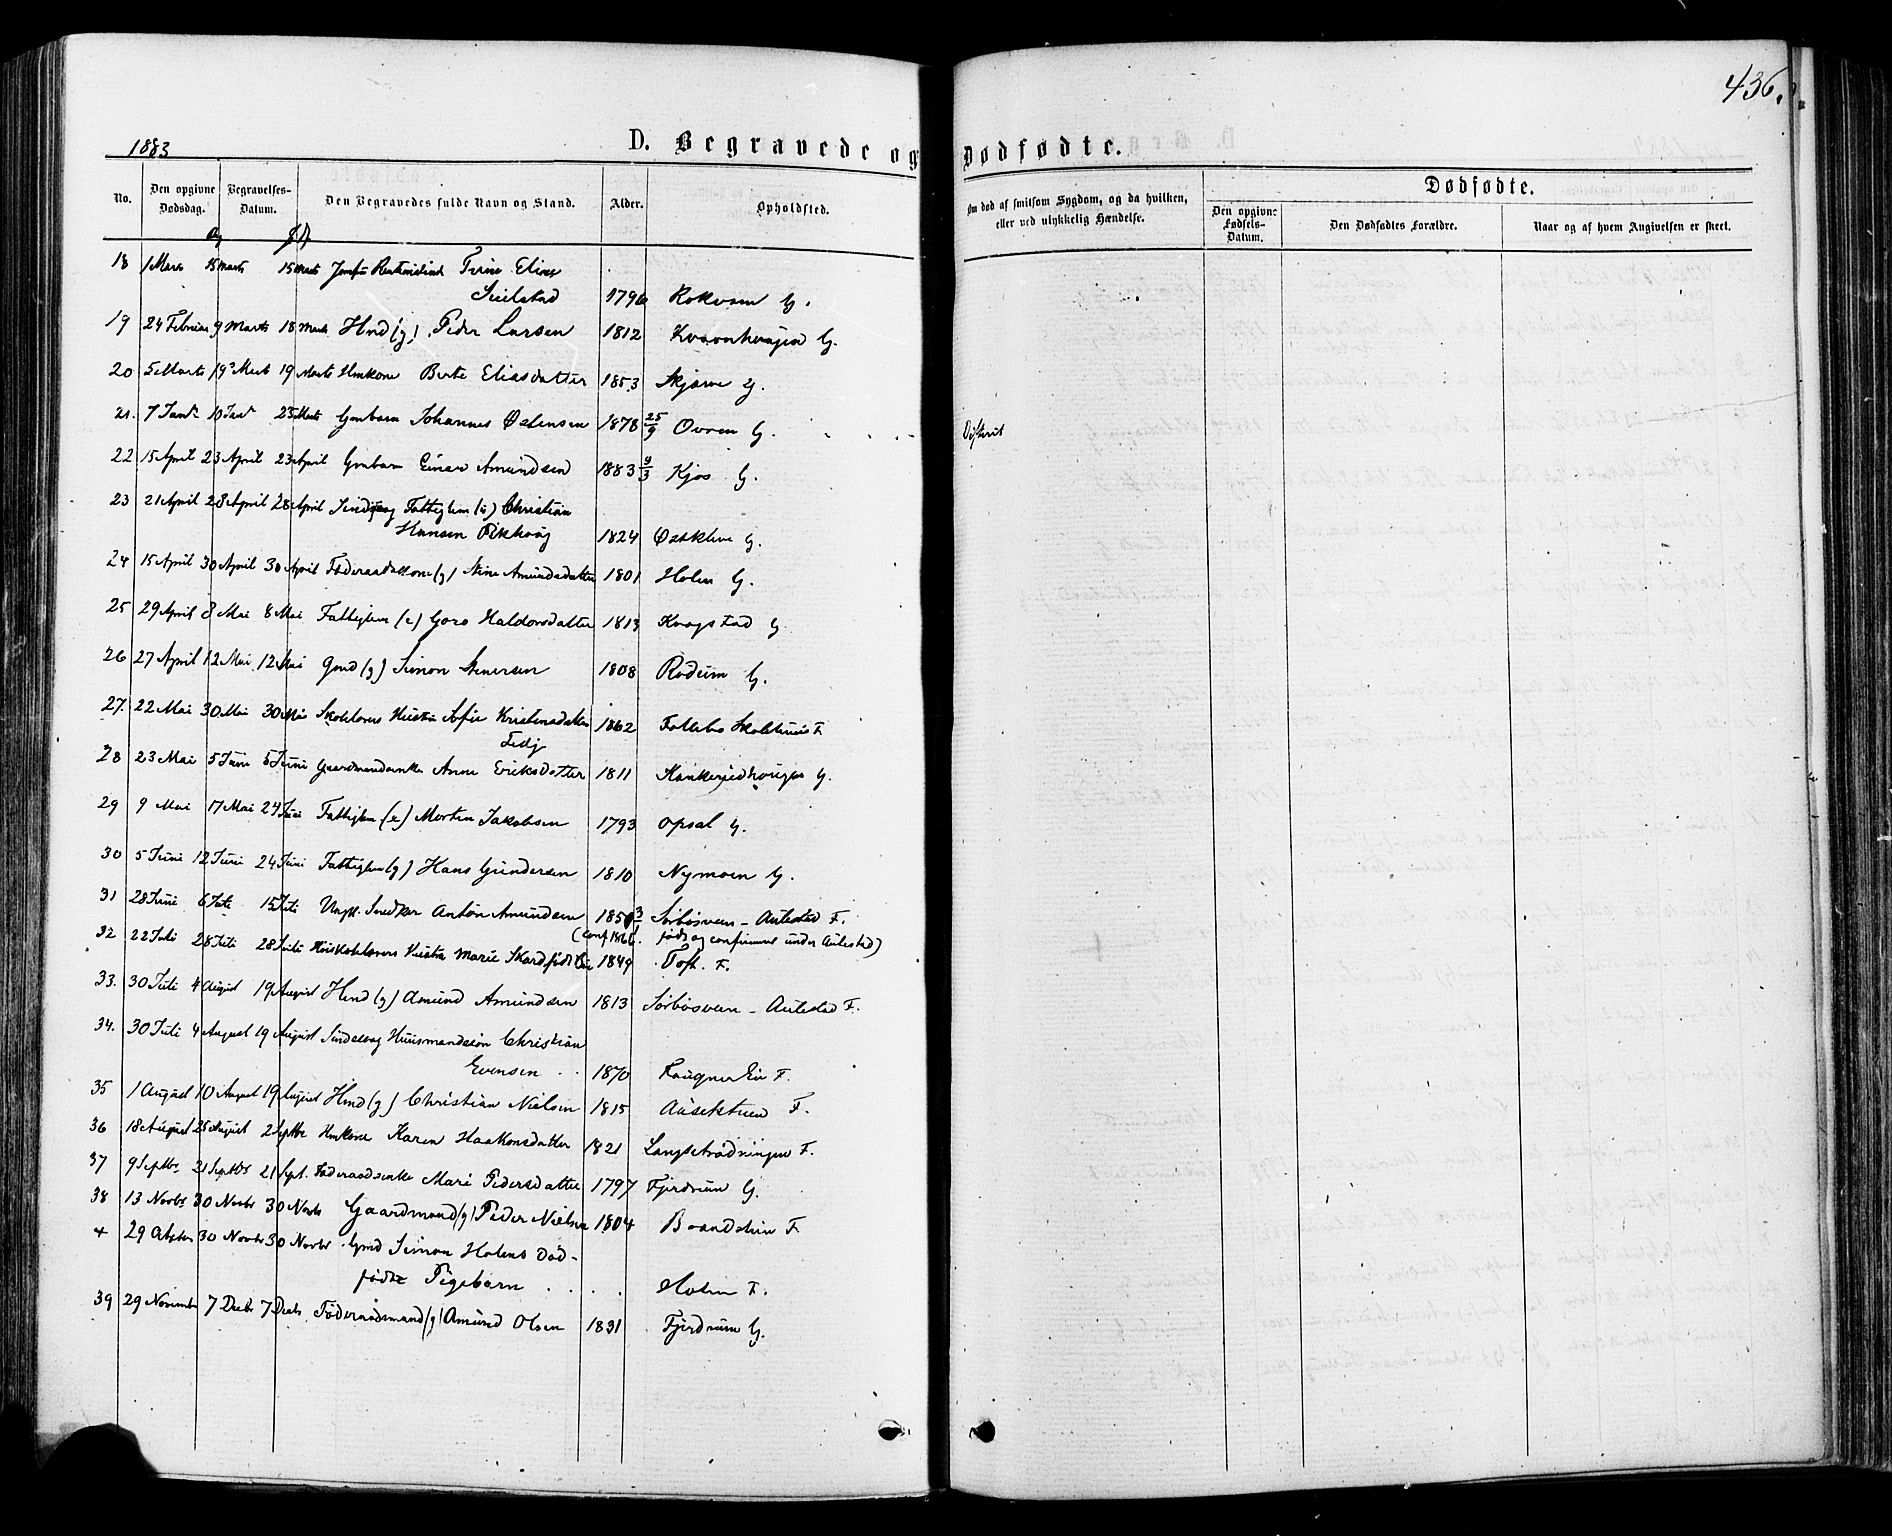 436.
1883
D. Begravede og Dødfødte.
No.
Den opgivne Dødsdag.
Begravelses-Datum.
Den Begravedes fulde Navn og Stand.
Alder.
Opholdsted.
Om død af smitsom Sygdom, og da hvilken, eller ved ulykkelig Hændelse.
Dødfødte.
Den opgivne Fødsels-Datum.
Den Dødfødtes Forældre.
Naar og af hvem Angivelsen er skeet.
18 1 Marts 15 Marts 15 Marts Trine Elise
1796 Rokvam G.
19 24 Februar 9 Marts 18 Marts Hmd (g) Peder Larsen 1812 G.
20 5 Marts 19 Marts 19 Marts Hmkone Berte Eliasdatter 1853 Skjørve G.
21. 7 Janr 10 Janr 25 Marts Gmbarn Johannes Østensen 1878 25/9 Ovren G.
22 15 April 23 April 23 April Gmbarn Einar Amundsen 1883 9/3 Kjos G.
23 21 April 28 April 28 April Sindsvag Fattiglem (u) Christian
Hansen 1824 G.
24 15 April 30 April 30 April (g) Amundsdatter 1801 Holen G.
25 29 April 8 Mai 8 Mai Fattiglem (e) Goro Haldorsdatter 1813 Kragstad G.
26 27 April 12 Mai 12 Mai Gmd (g) Simon Stenersen 1808 Rødum G.
27. 22 Mai 30 Mai 30 Mai Skolelærers Hustru Sofie Kristensdatter 1862 Follebu Skolehuus F.
28 23 Mai 5 Juni 5 Juni Gaardmandsenke Anne Eriksdatter 1811 G.
29 9 Mai 17 Mai 24 Juni Fattiglem (e) Morten Jakobsen 1793 Opsal G.
30 5 Juni 12 Juni 24 Juni Fattiglem (g) Hans Gundersen 1810 Nymoen G.
31 28 Juni 6 Juli 15 Juli Ungk. Snedker Anton Amundsen 1850 Sørbøsveen - Aulestad F.
(Conf 1866. født og confirmeret under Aulestad)
32 22 Juli 28 Juli 28 Juli Høiskolelærers Hustru Marie Skard født 1849 Toft. F.
33. 30 Juli 4 August 19 August Hmd (g) Amund Amundsen 1813 Sørbøsveen - Aulestad F.
34. 30 Juli 4 August 19 August Sindssvag Huusmandssøn Christian
Evensen 1870 F.
35 1 August 10 August 19 August Hmd (g) Christian Nielsen 1815 F.
36 18 August 25 August 2 Septbr Hmkone Karen Haakonsdatter 1821 F.
37 9 Septbr 21 Septbr 21 Sept. Føderaadsenke Mari Pedersdatter 1797 Fjerdrum G.
38 13 Novbr 30 Novbr 30 Novbr Gaardmand (g) Peder Nielsen 1804 F.
4 29 Oktbr 30 Novbr 30 Novbr Gmd Simon Holens død-
født Pigebarn Holen F.
39 29 November 7 Decbr 7 Decbr Føderaadsmand (g) Amund Olsen 1831 Fjerdrum G.